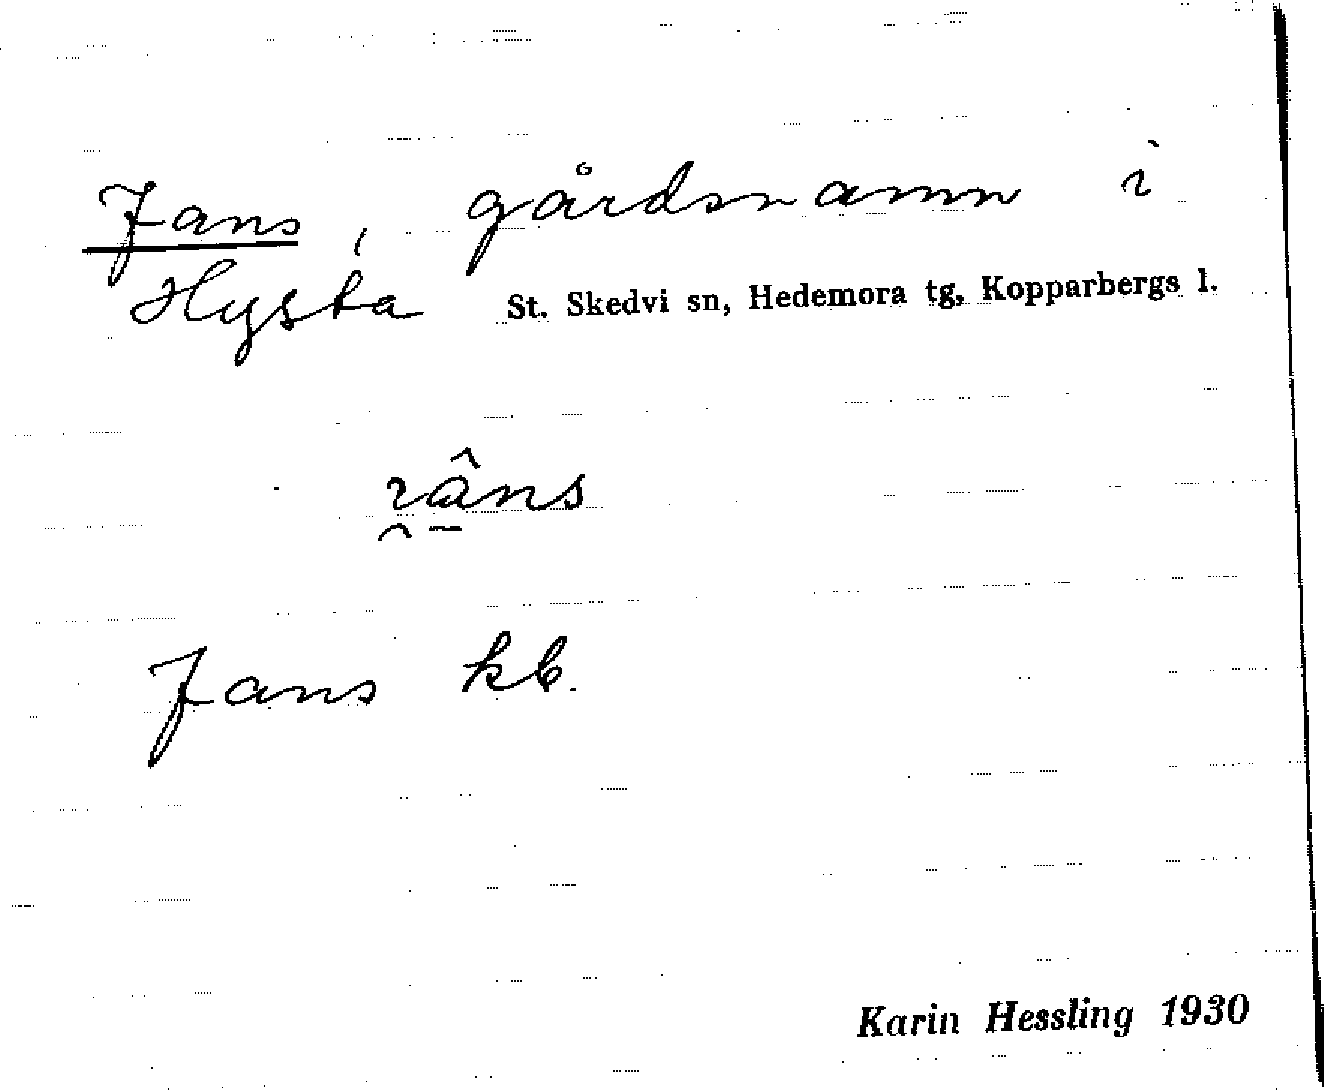 Jans, gårdsnamn i
Hysta St. Skedvi sn, Hedemora tg, Kopparbergs l.
ı̯â̠ns
Jans kb.
Karin Hessling 1930